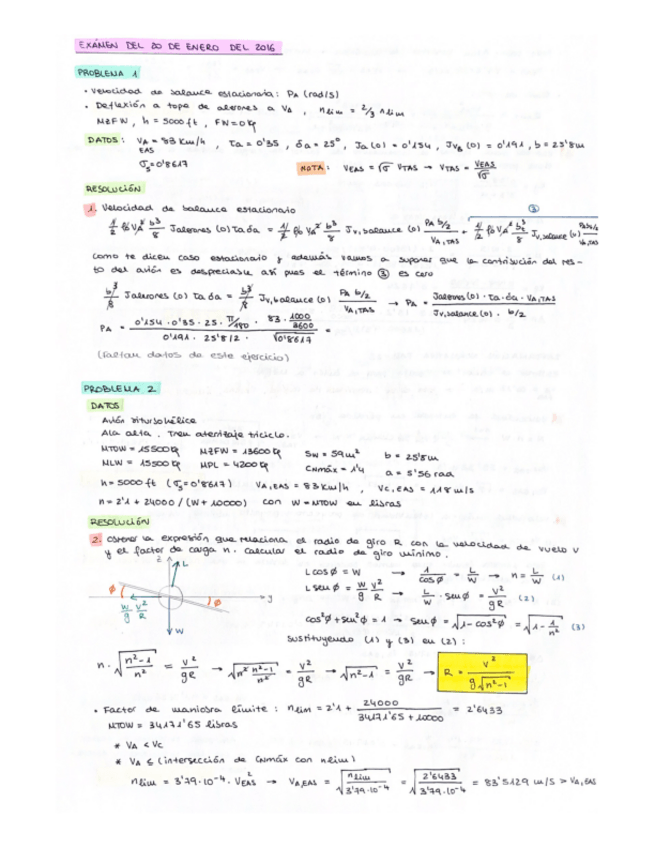 EXÁMEN DEL 20 DE ENERO DEL 2016
PROBLEMA 1
• Velocidad de balance estacionaria: PA (rad/s)
• Deflexión a tope de alerones a VA, nlim = 2/3 nlim
MZFW, h = 5000 ft, FW = 0 kg
DATOS: VA = 83 km/h, τa = 0'35, δa = 25°, Ja(0) = 0'154, JVB(0) = 0'191, b = 25'8m
EAS
σs = 0'8617
NOTA: VEAS = √σ VTAS → VTAS = VEAS/√σ
RESOLUCIÓN
1. Velocidad de balance estacionario
½ ρ0 VA² b³/8 Jalerones(0) τa δa = ½ ρ0 VA² b³/8 Jv,balance(0) PA b/2 / VA,TAS + ½ ρ0 VA² bt³/8 Jv,balance(0)
③
Como te dicen caso estacionario y además vamos a suponer que la contribución del res-
to del avión es despreciable así pues el término ③ es cero
b³/8 Jalerones(0) τa δa = b³/8 Jv,balance(0) PA b/2 / VA,TAS → PA = Jalerones(0) · τa · δa · VA,TAS / Jv,balance(0) · b/2
PA = 0'154 · 0'35 · 25 · π/180 · 83 · 1000/3600 / 0'191 · 25'8/2 · √0'8617 =
(Faltan datos de este ejercicio)
PROBLEMA 2
DATOS
Avión biturbohélice
Ala alta. Tren aterrizaje triciclo.
MTOW = 15500 kg MZFW = 13600 kg SW = 59 m² b = 25'8 m
MLW = 15500 kg MPL = 4200 kg CNmáx = 1'4 a = 5'56 rad
h = 5000 ft (σs = 0'8617) VA,EAS = 83 km/h, VC,EAS = 118 m/s
n = 2'1 + 24000 / (W + 10000) con W = MTOW en libras
RESOLUCIÓN
2. Obtener la expresión que relaciona el radio de giro R con la velocidad de vuelo V
y el factor de carga n. Calcular el radio de giro mínimo.
z L y W ϕ ϕ W/g V²/R
L cos ϕ = W → 1/cos ϕ = L/W → n = L/W (1)
L sen ϕ = W/g V²/R → L/W · sen ϕ = V²/gR (2)
cos²ϕ + sen²ϕ = 1 → sen ϕ = √1 - cos²ϕ = √1 - 1/n² (3)
Sustituyendo (1) y (3) en (2):
n · √n²-1/n² = V²/gR → √n² n²-1/n² = V²/gR → √n²-1 = V²/gR → R = V²/g√n²-1
• Factor de maniobra límite: nlim = 2'1 + 24000/34171'65 + 10000 = 2'6433
MTOW = 34171'65 libras
* VA < VC
* VA ≤ (intersección de CNmáx con nlim)
nlim = 3'79·10⁻⁴ · VEAS² → VA,EAS = √nlim/3'79·10⁻⁴ = √2'6433/3'79·10⁻⁴ = 83'5129 m/s > VA,EAS